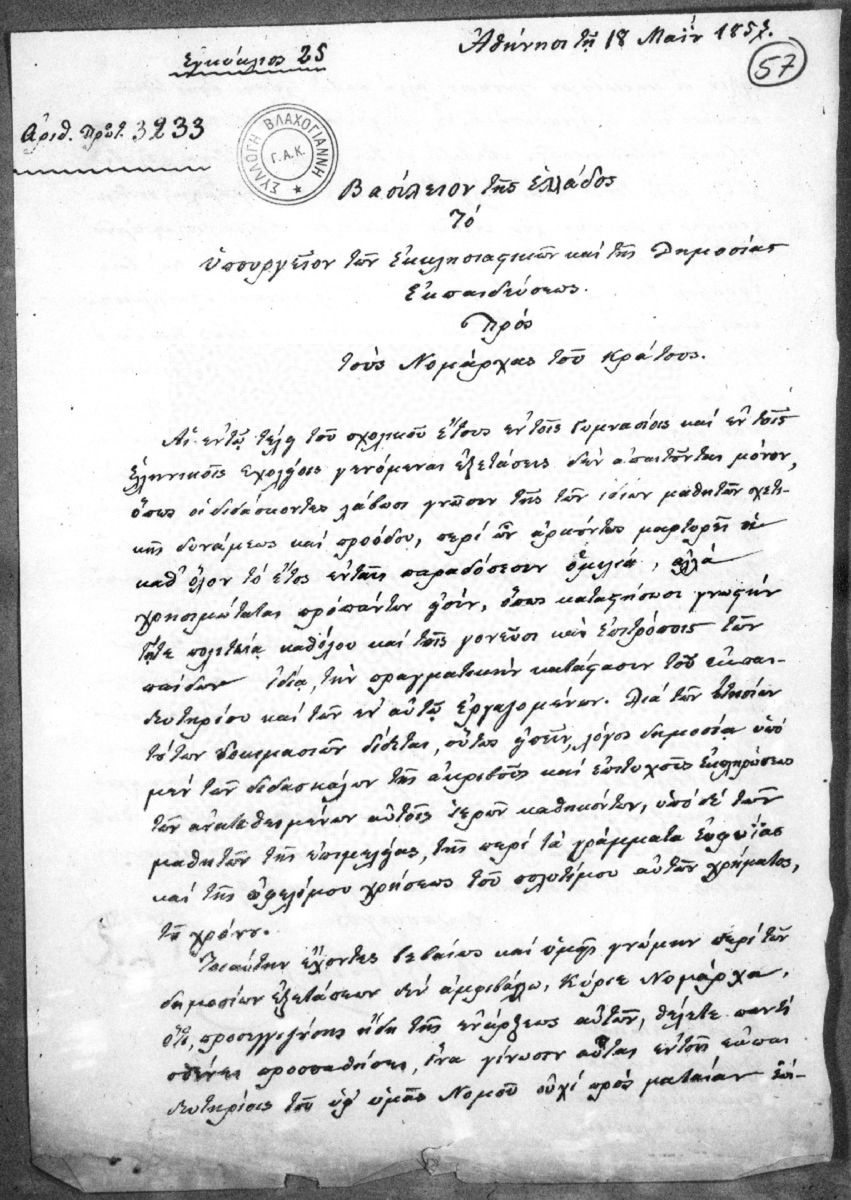 Ἐγκύκλιος 25
Ἀθήνησι τῇ 18 Μαΐου 1857.
57
Ἀριθ. Πρωτ. 3233
ΣΥΛΛΟΓΗ ΒΛΑΧΟΓΙΑΝΝΗ
Γ.Α.Κ.
Βασίλειον τῆς Ἑλλάδος
Τὸ
Ὑπουργεῖον τῶν Ἐκκλησιαστικῶν καὶ τῆς Δημοσίας
Ἐκπαιδεύσεως.
Πρὸς
τοὺς Νομάρχας τοῦ Κράτους.
Αἱ ἐν τῷ τέλει τοῦ σχολικοῦ ἔτους ἐν τοῖς Γυμνασίοις καὶ ἐν τοῖς
Ἑλληνικοῖς σχολείοις γενόμεναι ἐξετάσεις δὲν ἀπαιτοῦνται μόνον,
ὅπως οἱ διδάσκοντες λάβωσι γνῶσιν τῆς τῶν ἰδίων μαθητῶν σχετι-
κῆς δυνάμεως καὶ προόδου, περὶ ὧν ἀρκούντως μαρτυρεῖ ἡ
καθ' ὅλον τὸ ἔτος ἐν ταῖς παραδόσεσιν ὁμιλία, ἀλλὰ
χρησιμώταται πρὸ πάντων εἰσίν, ὅπως καταστήσωσι γνωστὴν
τῇ τε πολιτείᾳ καθόλου καὶ τοῖς γονεῦσι καὶ ἐπιτρόποις τῶν
παίδων ἰδίᾳ, τὴν πραγματικὴν κατάστασιν τοῦ ἐκπαι-
δευτηρίου καὶ τῶν ἐν αὐτῷ ἐργαζομένων. Διὰ τῶν ἐτησίων
τούτων δοκιμασιῶν δίδεται, οὕτως εἰπεῖν, λόγος δημοσίᾳ ὑπὸ
μὲν τῶν διδασκάλων τῆς ἀκριβοῦς καὶ ἐπιτυχοῦς ἐκπληρώσεως
τῶν ἀνατεθειμένων αὐτοῖς ἱερῶν καθηκόντων, ὑπὸ δὲ τῶν
μαθητῶν τῆς ἐπιμελείας, τῆς περὶ τὰ γράμματα εὐφυΐας
καὶ τῆς ὠφελίμου χρήσεως τοῦ πολυτίμου αὐτῶν χρήματος,
τοῦ χρόνου.
Τοιαύτην ἔχοντες βεβαίως καὶ ὑμεῖς γνώμην περὶ τῶν
δημοσίων ἐξετάσεων δὲν ἀμφιβάλλω, Κύριε Νομάρχα,
ὅτι, προσεγγιζούσης ἤδη τῆς ἐνάρξεως αὐτῶν, θέλετε παντὶ
σθένει προσπαθήσει, ἵνα γίνωσιν αὗται ἐν τοῖς ἐκπαι
δευτηρίοις τοῦ ὑφ' ὑμᾶς Νομοῦ οὐχὶ πρὸς ματαίαν ἐπί-